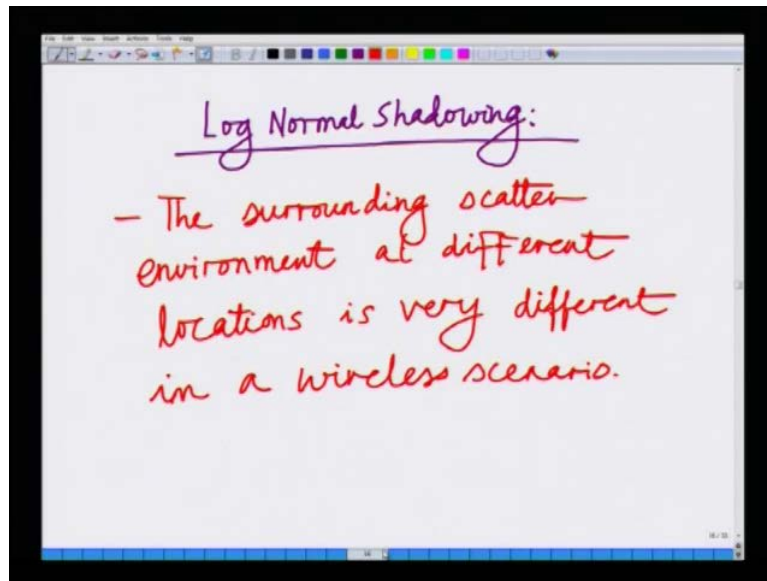 File Edit View Insert Actions Tools Help
B I
Log Normal Shadowing:
- The surrounding scatter
environment at different
locations is very different
in a wireless scenario.